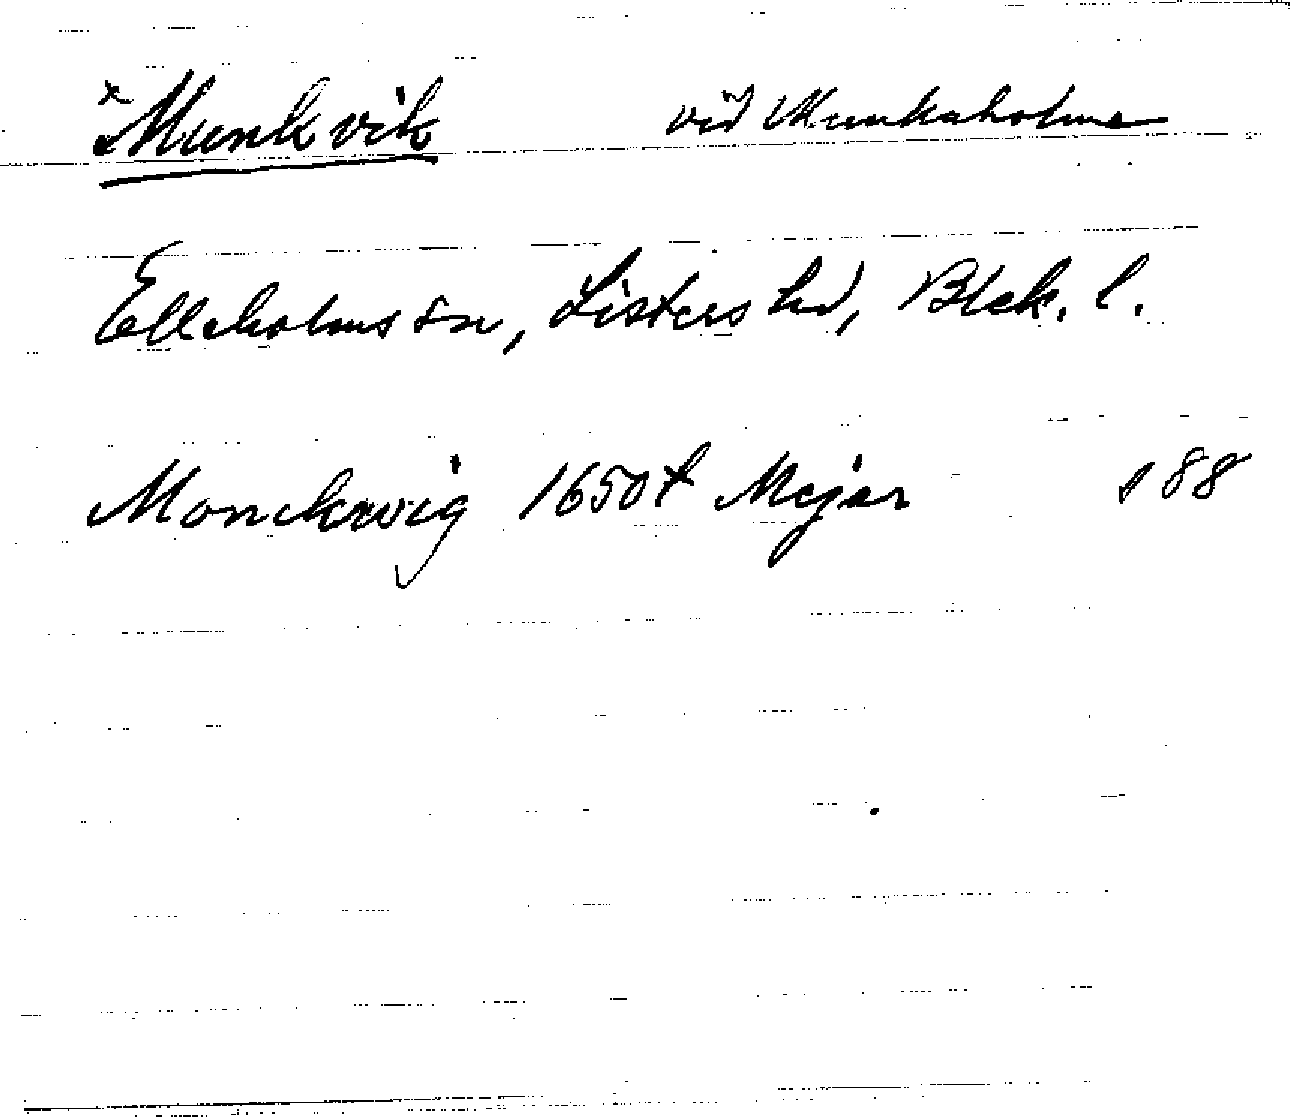 x Munkvik vid Munkaholme
Elleholms sn, Listers hd, Blek. l.
Monckwig 1650t Mejer s 88